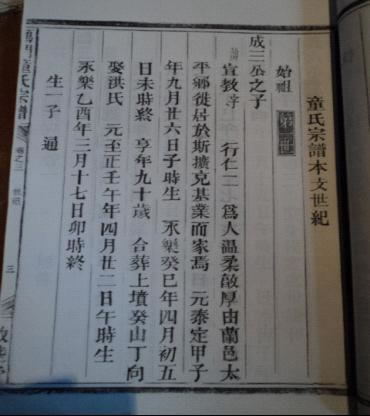 童氏宗譜本文世紀
始祖 第一世
成三公之子
宣教 字 行仁二 爲人溫柔敦厚由蘭邑太
平鄉徙居於斯擴克基業而家焉 元泰定甲子
年九月廿六日子時生 永樂癸巳年四月初五
日未時終 享年九十歲 合葬上墳癸山丁向
娶洪氏 元至正壬午年四月廿二日午時生
永樂乙酉年三月十七日卯時終
生一子 通
童氏宗譜
卷之三
三